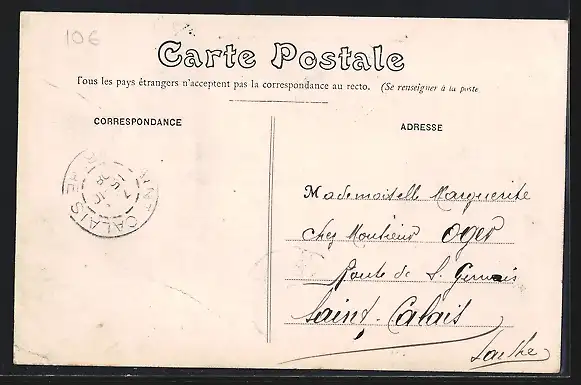 106
Carte Postale
Tous les pays étrangers n'acceptent pas la correspondance au recto. (Se renseigner à la poste
CORRESPONDANCE
ADRESSE
CALAIS
Mademoiselle Marguerite
chez Monsieur Oger
Route de S. Gervais
Saint-Calais
Sarthe